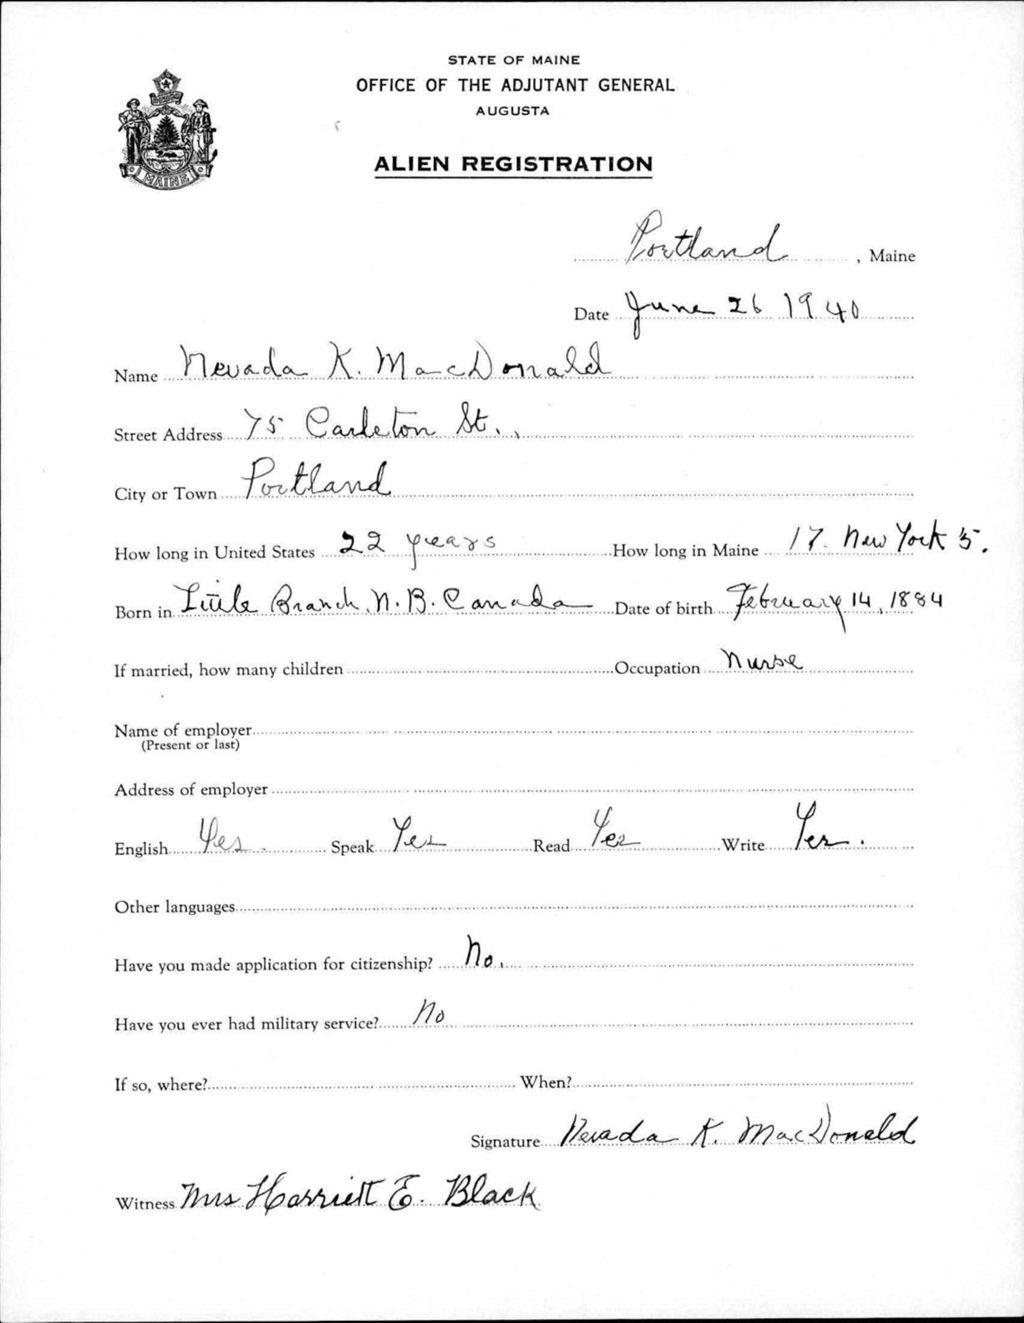 STATE OF MAINE
OFFICE OF THE ADJUTANT GENERAL
AUGUSTA
ALIEN REGISTRATION
MAINE
Portland, Maine
Date June 26 1940
Name Nevada K. MacDonald
Street Address 75 Carleton St.,
City or Town Portland
How long in United States 22 years How long in Maine 17. New York 5.
Born in Little Branch, N.B. Canada Date of birth February 14, 1884
If married, how many children Occupation Nurse
Name of employer
(Present or last)
Address of employer
English Yes. Speak Yes Read Yes Write Yes.
Other languages
Have you made application for citizenship? No.
Have you ever had military service? No
If so, where? When?
Signature Nevada K. MacDonald
Witness Mrs Harriett E. Black